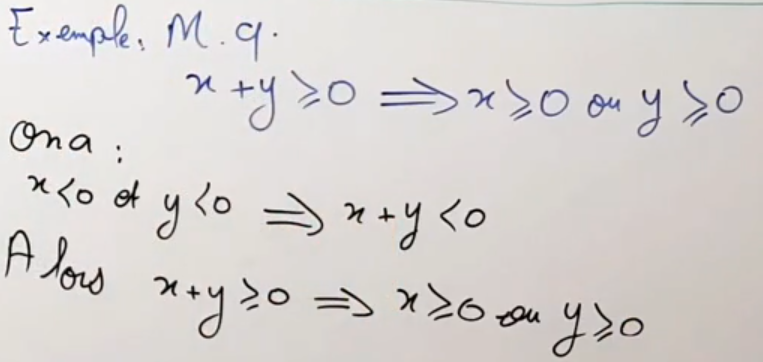 Exemple. M.q.
x+y ⩾ 0 ⟹ x ⩾ 0 ou y ⩾ 0
Ona :
x<0 et y<0 ⟹ x+y<0
Alors x+y ⩾ 0 ⟹ x ⩾ 0 ou y ⩾ 0